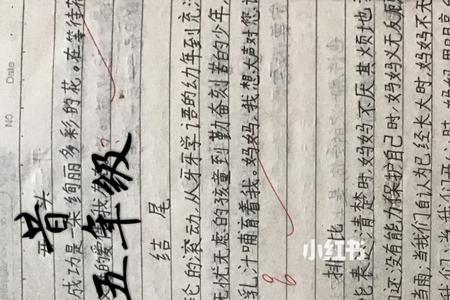 No Date
头
成功是一朵绚丽多彩的花。在等待
五年级
结尾
轮的滚动,从牙牙学语的幼年到充
无忧无虑的孩童到勤奋刻苦的少年,
乳汁哺育着我。妈妈,我想大声对您
排比
还清楚时,妈妈不厌其烦地
还没有能力保护自己时,妈妈义无反
雨;当我们自认为已经长大时,妈妈不
小红书